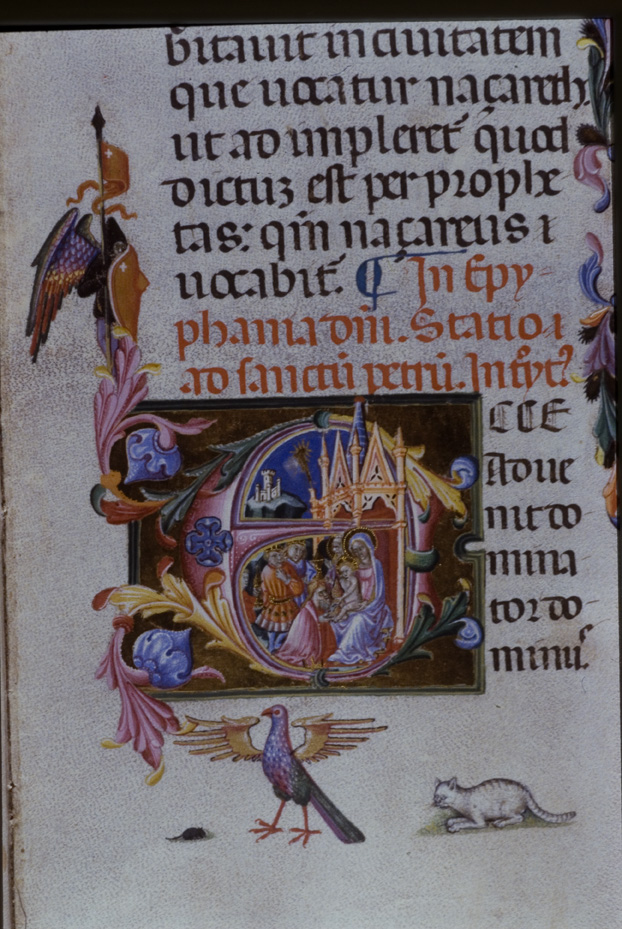 bitauit in ciuitatem
que uocatur naçareth.
ut ad impleret̄ quod
dictuʒ est per prophe
tas: qm̄ naçareus ı
uocabit̄. ¶ In epy-
phania dn̄i. Statio ı
ad sanctū petrū. Introyt9
ECCE
Adue
nit do-
mina
tor do-
minus.